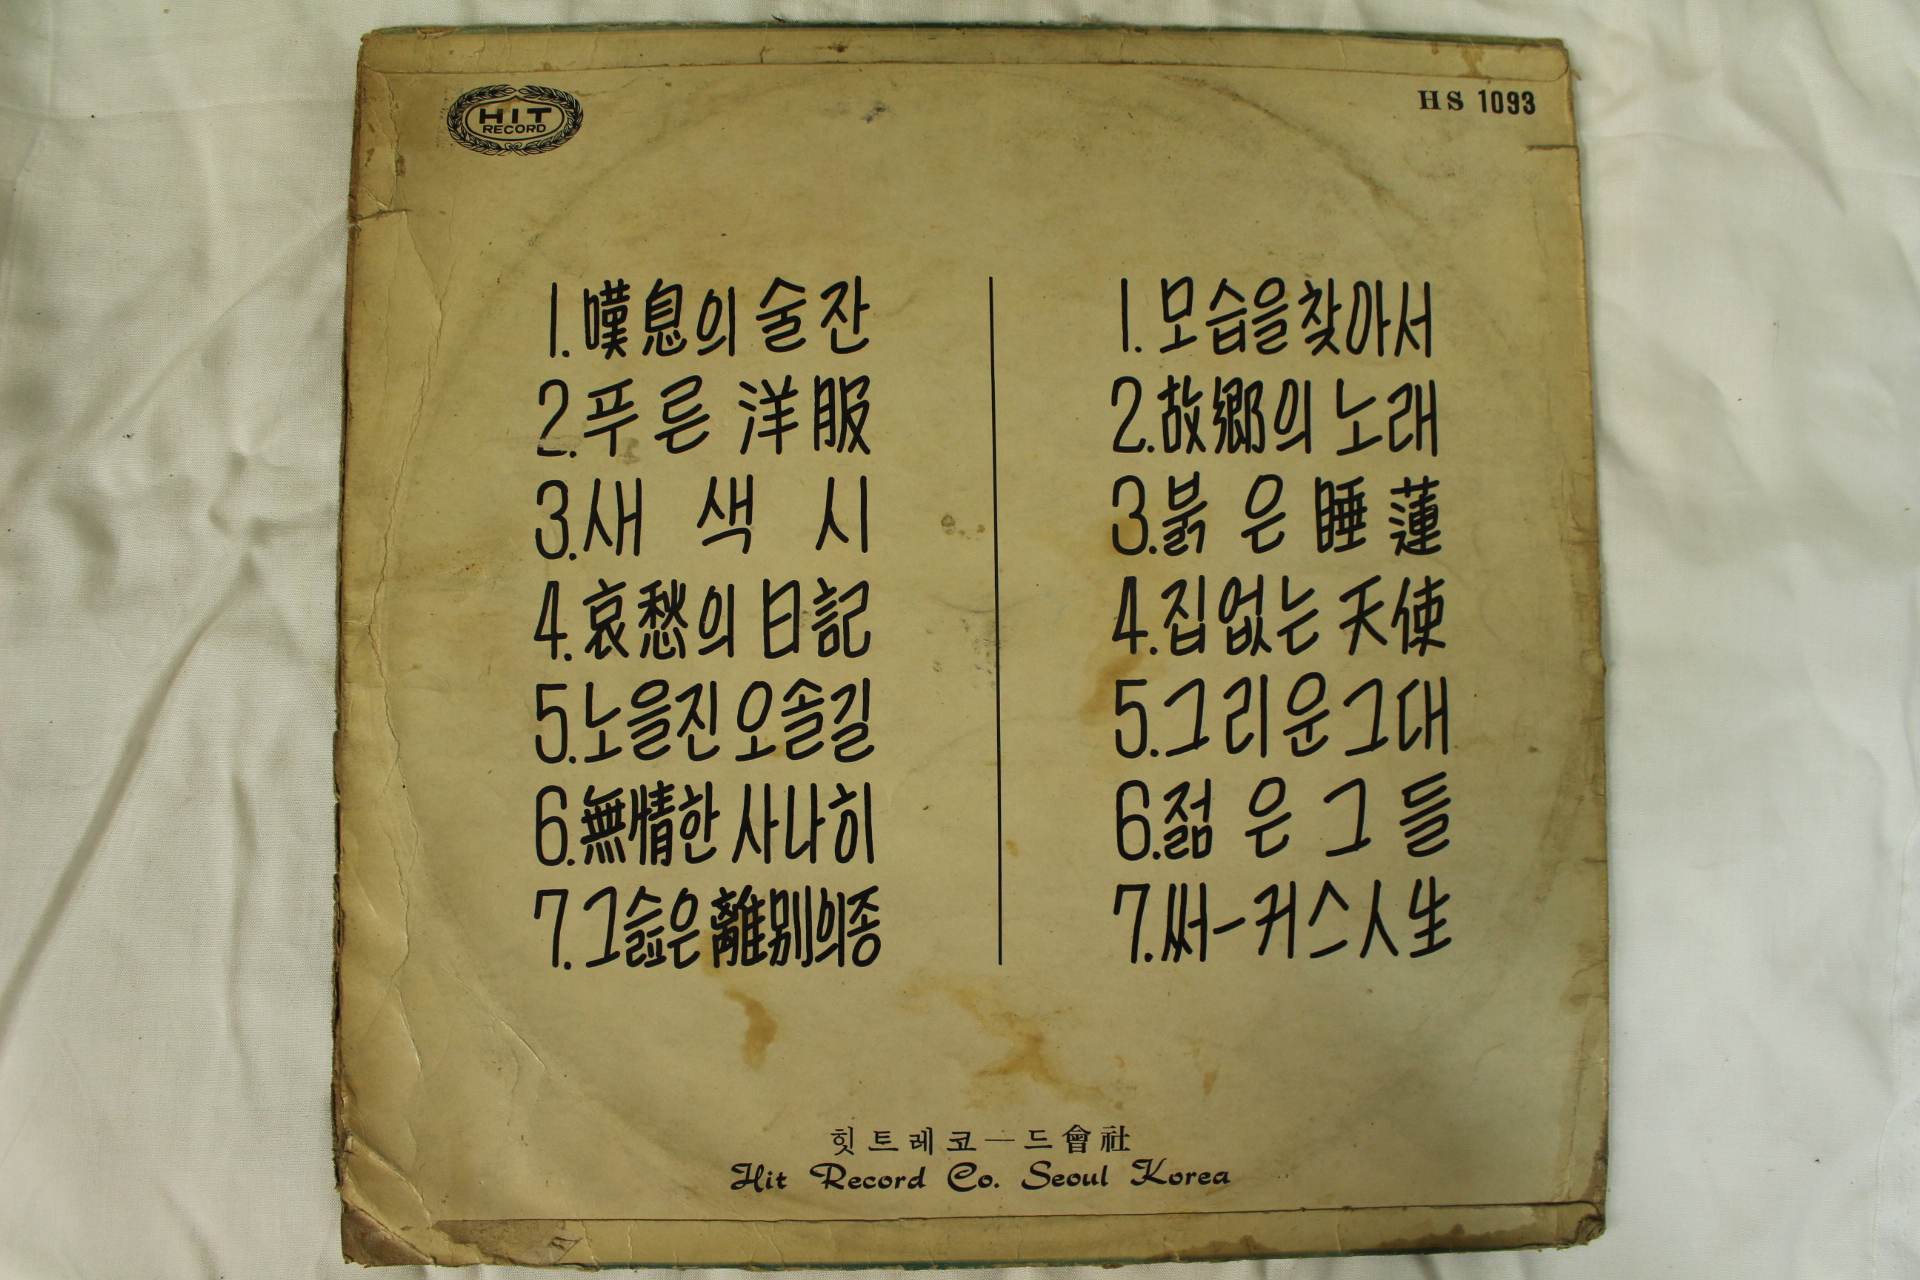 HIT
RECORD
HS 1093
1. 嘆息의 술잔
2. 푸른 洋服
3. 새색시
4. 哀愁의 日記
5. 노을진 오솔길
6. 無情한 사나히
7. 그 슲은 離別의 종
1. 모습을 찾아서
2. 故鄕의 노래
3. 붉은 睡蓮
4. 집없는 天使
5. 그리운 그대
6. 젊은 그들
7. 써ー커스 人生
힛트레코ー드會社
Hit Record Co. Seoul Korea